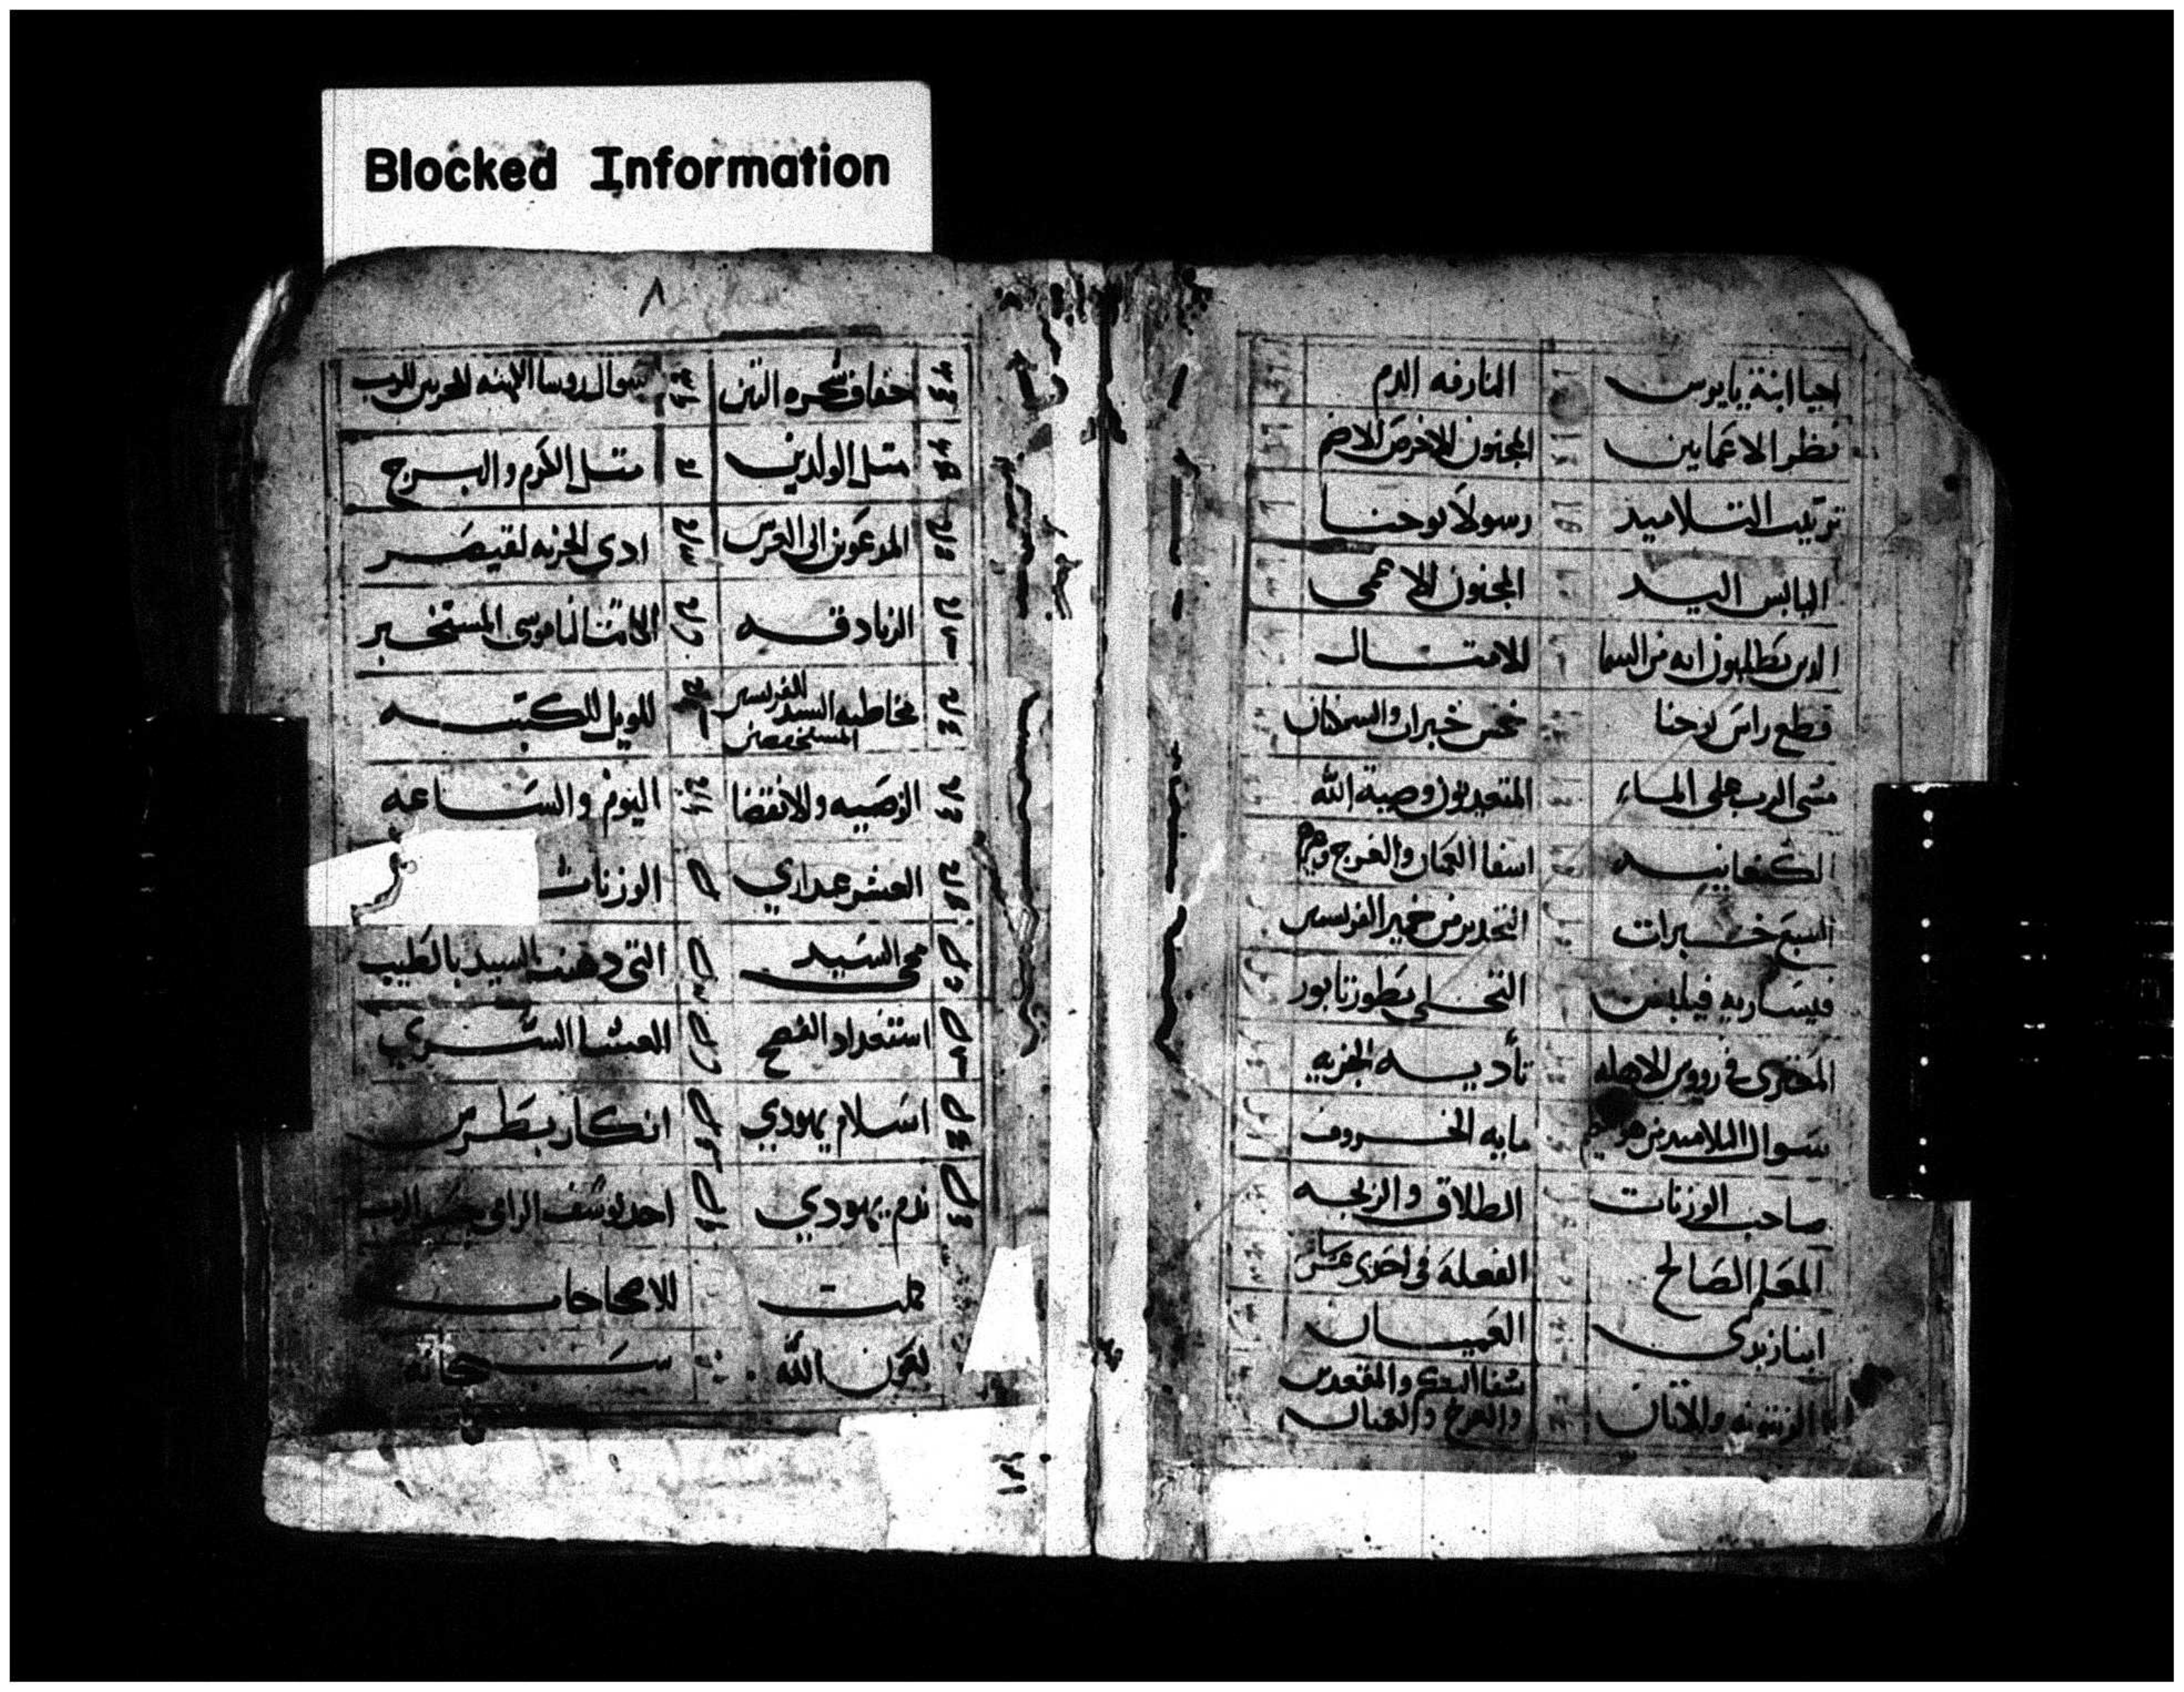 Blocked Information
احيا ابنة يايروس
النازفه الدم
نظر الاعمايين
المجنون الاخرص الاصم
ترتيب التلاميد
رسولا يوحنا
اليابس اليد
المجنون الاعمى
الدين يطلبون ايه من السما
الامتال
قطع راس يوحنا
خمس خبزات والسمكتان
مشى الرب على الماء
المتعديون وصية الله
الكنعانيه
اسفا العميان والعرج وغيرهم
السبع خبزات
التحدير من خمير الفريسين
قيساريه فيلبس
التجلي بطور تابور
المعترى في رووس الاهله
تأديه الجزيه
سوال التلاميد من هو العظيم
مايه الخروف
صاحب الوزنات
الطلاق والزيجه
المعلم الصالح
الفعله في احدى عشر ساعه
ابنا زبدي
العميان
الزيتونه والاتان
شفا البكم والمقعدين
والعرج والعميان
٨
جفاف شجره التين
سوال روسا الكهنه للرب
متل الولدين
متل الكرم والبرج
المدعوين الى العرس
ادى الجزيه لقيصر
الزنادقه
الكاتب الناموسي المستخبر
مخاطبه السيد الفريسين
المستخبرين
الويل للكتبه
الوصيه والانقضا
اليوم والساعه
العشر عداري
الوزنات
مجي السيد
التي دهنت السيد بالطيب
استعداد الفصح
العشا السري
اسلام يهودي
انكار بطرس
ندم يهودي
احد يوسف الرامي جسد الرب
كملت
الاصحاحات
بعون الله
سبحانه